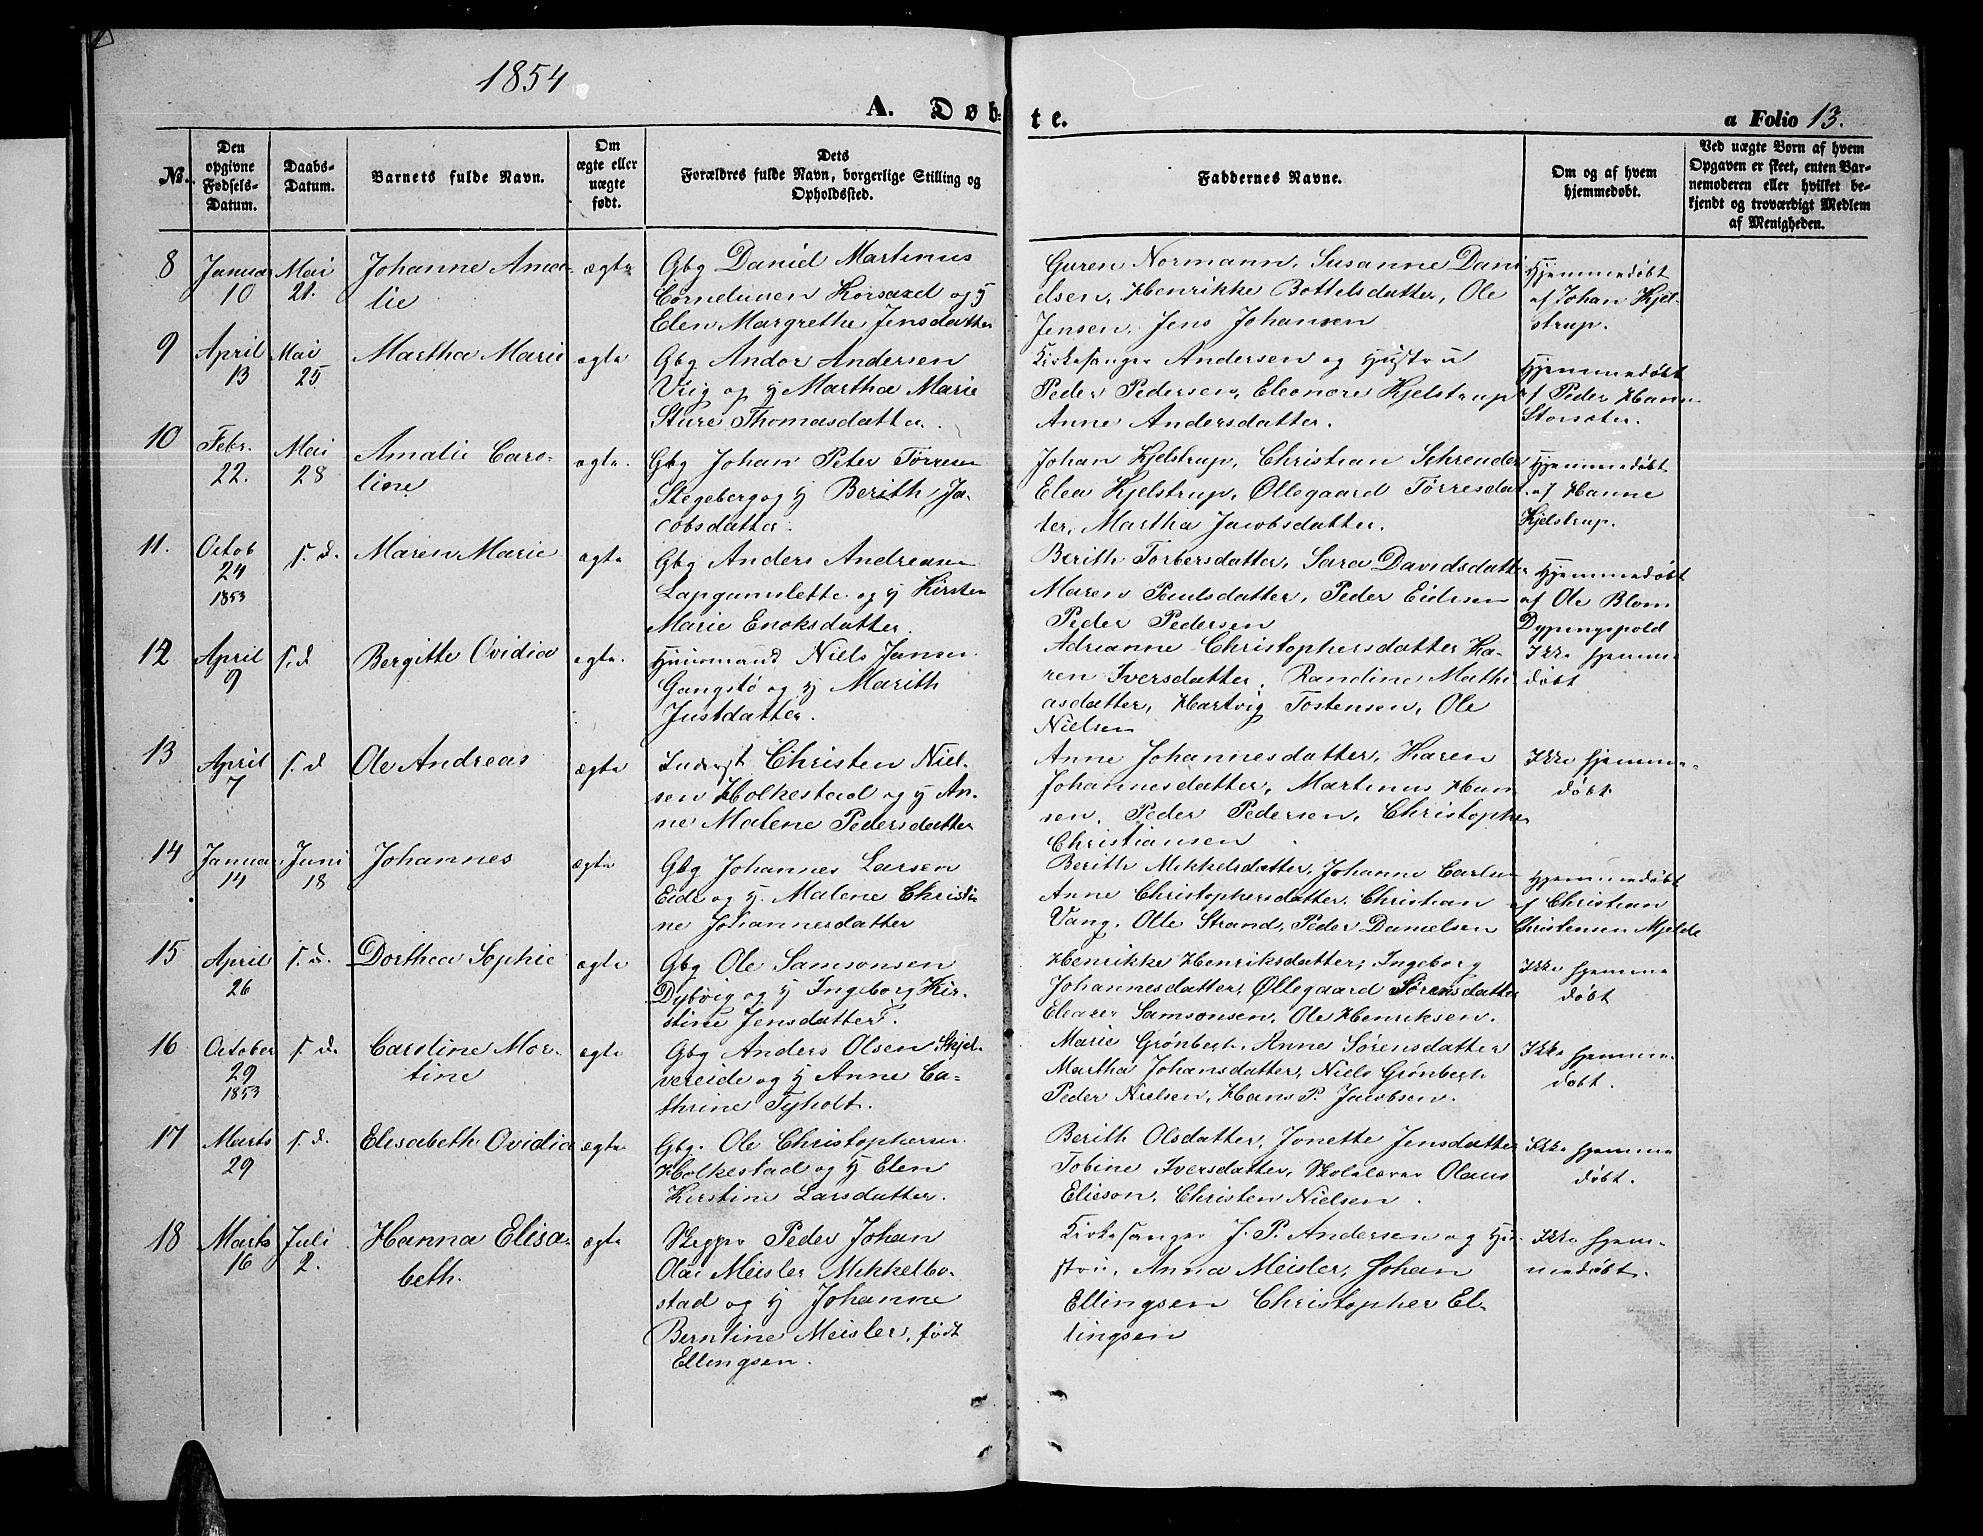 1854
A. Døb-
te.
a Folio 13.
No.
Den opgivne Fødsels-Datum.
Daabs-Datum.
Barnets fulde Navn.
Om ægte eller uægte født.
Dets Forældres fulde Navn, borgerlige Stilling og Opholdssted.
Faddernes Navne.
Om og af hvem hjemmedøbt.
Ved uægte Børn af hvem Opgaven er skeet, enten Barnemoderen eller hvilket bekjendt og troværdigt Medlem af Menigheden.
8 Januar Mai Johanne Ama- ægte Gbg Daniel Martinus
10 21. lie Corneliusen Korsaxel og H
Elen Margrethe Jensdatter
Guren Normann, Susanne Dani
elsen, Henrikke Bottelsdatter, Ole
Jensen, Jens Johansen
Hjemmedøbt
af Johan Kjel-
strup.
9 April Mai Martha Marie ægte Gbg Andor Andersen
13 25 Vig og H Martha Marie
Sture Thomasdatter.
Kirkesanger Andersen og Hustru
Peder Pedersen, Eleonore Kjelstrup
Anne Andersdatter.
Hjemmedøbt
af Peder Hans
Storsæter.
10 Febr. Mai Amalie Caro- ægte. Gbg Johan Peter Tørresen
22. 28 line Stegeberg og H Berith Ja-
cobsdatter.
Johan Kjelstrup, Christian Schrøuder
Elea Kjelstrup, Øllegaard Tørresdat
ter, Martha Jacobsdatter.
Hjemmedøbt
af Hanne
Kjelstrup.
11. Octob s. d. Maren Marie ægte Gbg Anders Andreasen
24 Lapgamslette og H Kirsten
1853 Marie Enoksdatter.
Berith Torbersdatter, Sara Davidsdatter
Maren Paulsdatter, Peder Eidesen
Peder Pedersen
Hjemmedøbt
af Ole Blom
Dypingspold
12 April s. d Bergitte Ovidia ægte. Huusmand Niels Jansen
9 Gangstø og H Marith
Justdatter.
Adrianne Christophersdatter Ka-
ren Iversdatter, Randine Mathi
asdatter, Hartvig Tostensen, Ole
Nielsen
Ikke hjemme
døbt
13 April s. d Ole Andreas ægte Inderst Christen Niel-
7 sen Holkestad og H An-
ne Malene Pedersdatter
Anne Johannesdatter, Karen
Johannesdatter, Martinus Han
sen, Peder Pedersen, Christopher
Christiansen
Ikke hjemme-
døbt
14 Januar Juni Johannes ægte Gbg Johannes Larsen
14 18 Eide og H. Malene Christi
ne Johannesdatter
Berith Mikkelsdatter, Johanne Carlsen
Anne Christophersdatter, Christian
Vang, Ole Strand, Peder Danielsen
Hjemmedøbt
af Christian
Christensen Mjelde
15 April s. d. Dorthea Sophie ægte Gbg Ole Samsonsen
26 Dybvig og H Ingeborg Kir-
stine Jensdatter.
Henrikke Henriksdatter, Ingeborg
Johannesdatter, Øllegaard Sørensdatter
Eleazer Samsonsen, Ole Henriksen.
Ikke hjemme
døbt
16 October s. d. Caroline Mor- ægte Gbg Anders Olsen Skjel-
29 tine vereide og H Anne Ca-
1853 thrine Tyholt.
Marie Grønbech, Anne Sørensdatter
Martha Johansdatter, Niels Grønbech
Peder Nielsen, Hans P. Jacobsen.
Ikke hjemme-
døbt.
17 Marts s. d. Elisabeth Ovidia ægte Gbg. Ole Christophersen
29 Holkestad og H Elen
Kirstine Larsdatter.
Berith Olsdatter, Jonette Jensdatter
Tobine Iversdatter, Skolelærer Olaus
Elieson, Christen Nielsen.
Ikke hjemme
døbt.
18 Marts Juli Hanna Elisa- ægte Skipper Peder Johan
16 2. beth. Olai Meisler Mikkelbo-
stad og H Johanne
Berntine Meisler, født
Ellingsen.
Kirkesanger J. P. Andersen og Hu-
stru, Anna Meisler, Johan
Ellingsen Christopher El-
lingsen
Ikke hjem-
medøbt.